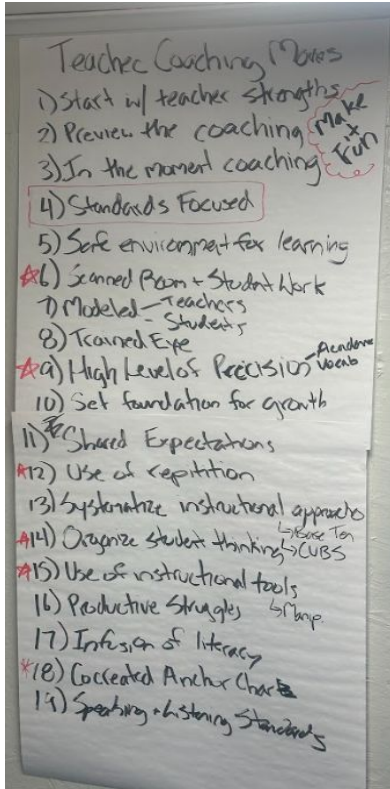 Teacher Coaching Moves
1) Start w/ teacher strengths
2) Preview the coaching
Make it fun
3) In the moment coaching
4) Standards Focused
5) Safe environment for learning
☆6) Scanned Room + Student Work
7) Modeled - Teachers
- Students
8) Trained Eye
☆9) High Level of Precision - Academic Vocab
10) Set foundation for growth
11) Shared Expectations
☆12) Use of repitition
13) Systematize instructional approachs
☆14) Organize student thinking
↳ Base Ten
↳ CUBS
☆15) Use of instructional tools
↳ Manip.
16) Productive Struggles
17) Infusion of literacy
*18) Cocreated Anchor Charts
19) Speaking + Listening Standards